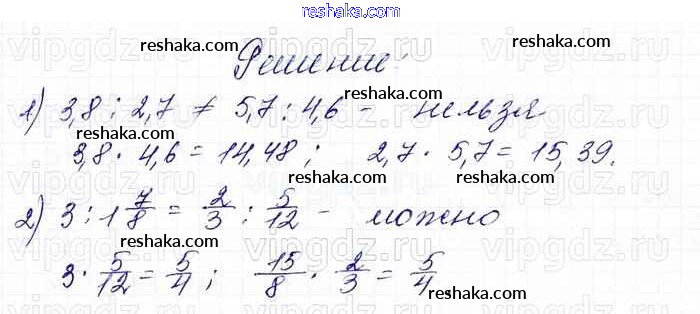 reshaka.com
vipgdz.ru vipgdz.ru vipgdz.ru
reshaka.com reshaka.com
Решение:
1) 3,8 : 2,7 ≠ 5,7 : 4,6 - нельзя
reshaka.com
3,8 · 4,6 = 14,48 ; 2,7 · 5,7 = 15,39.
vipgdz.ru vipgdz.ru vipgdz.ru
reshaka.com reshaka.com
2) 3 : 1 7/8 = 2/3 : 5/12 - можно
reshaka.com reshaka.com
3 · 5/12 = 5/4 ; 15/8 · 2/3 = 5/4
vipgdz.ru vipgdz.ru vipgdz.ru
reshaka.com